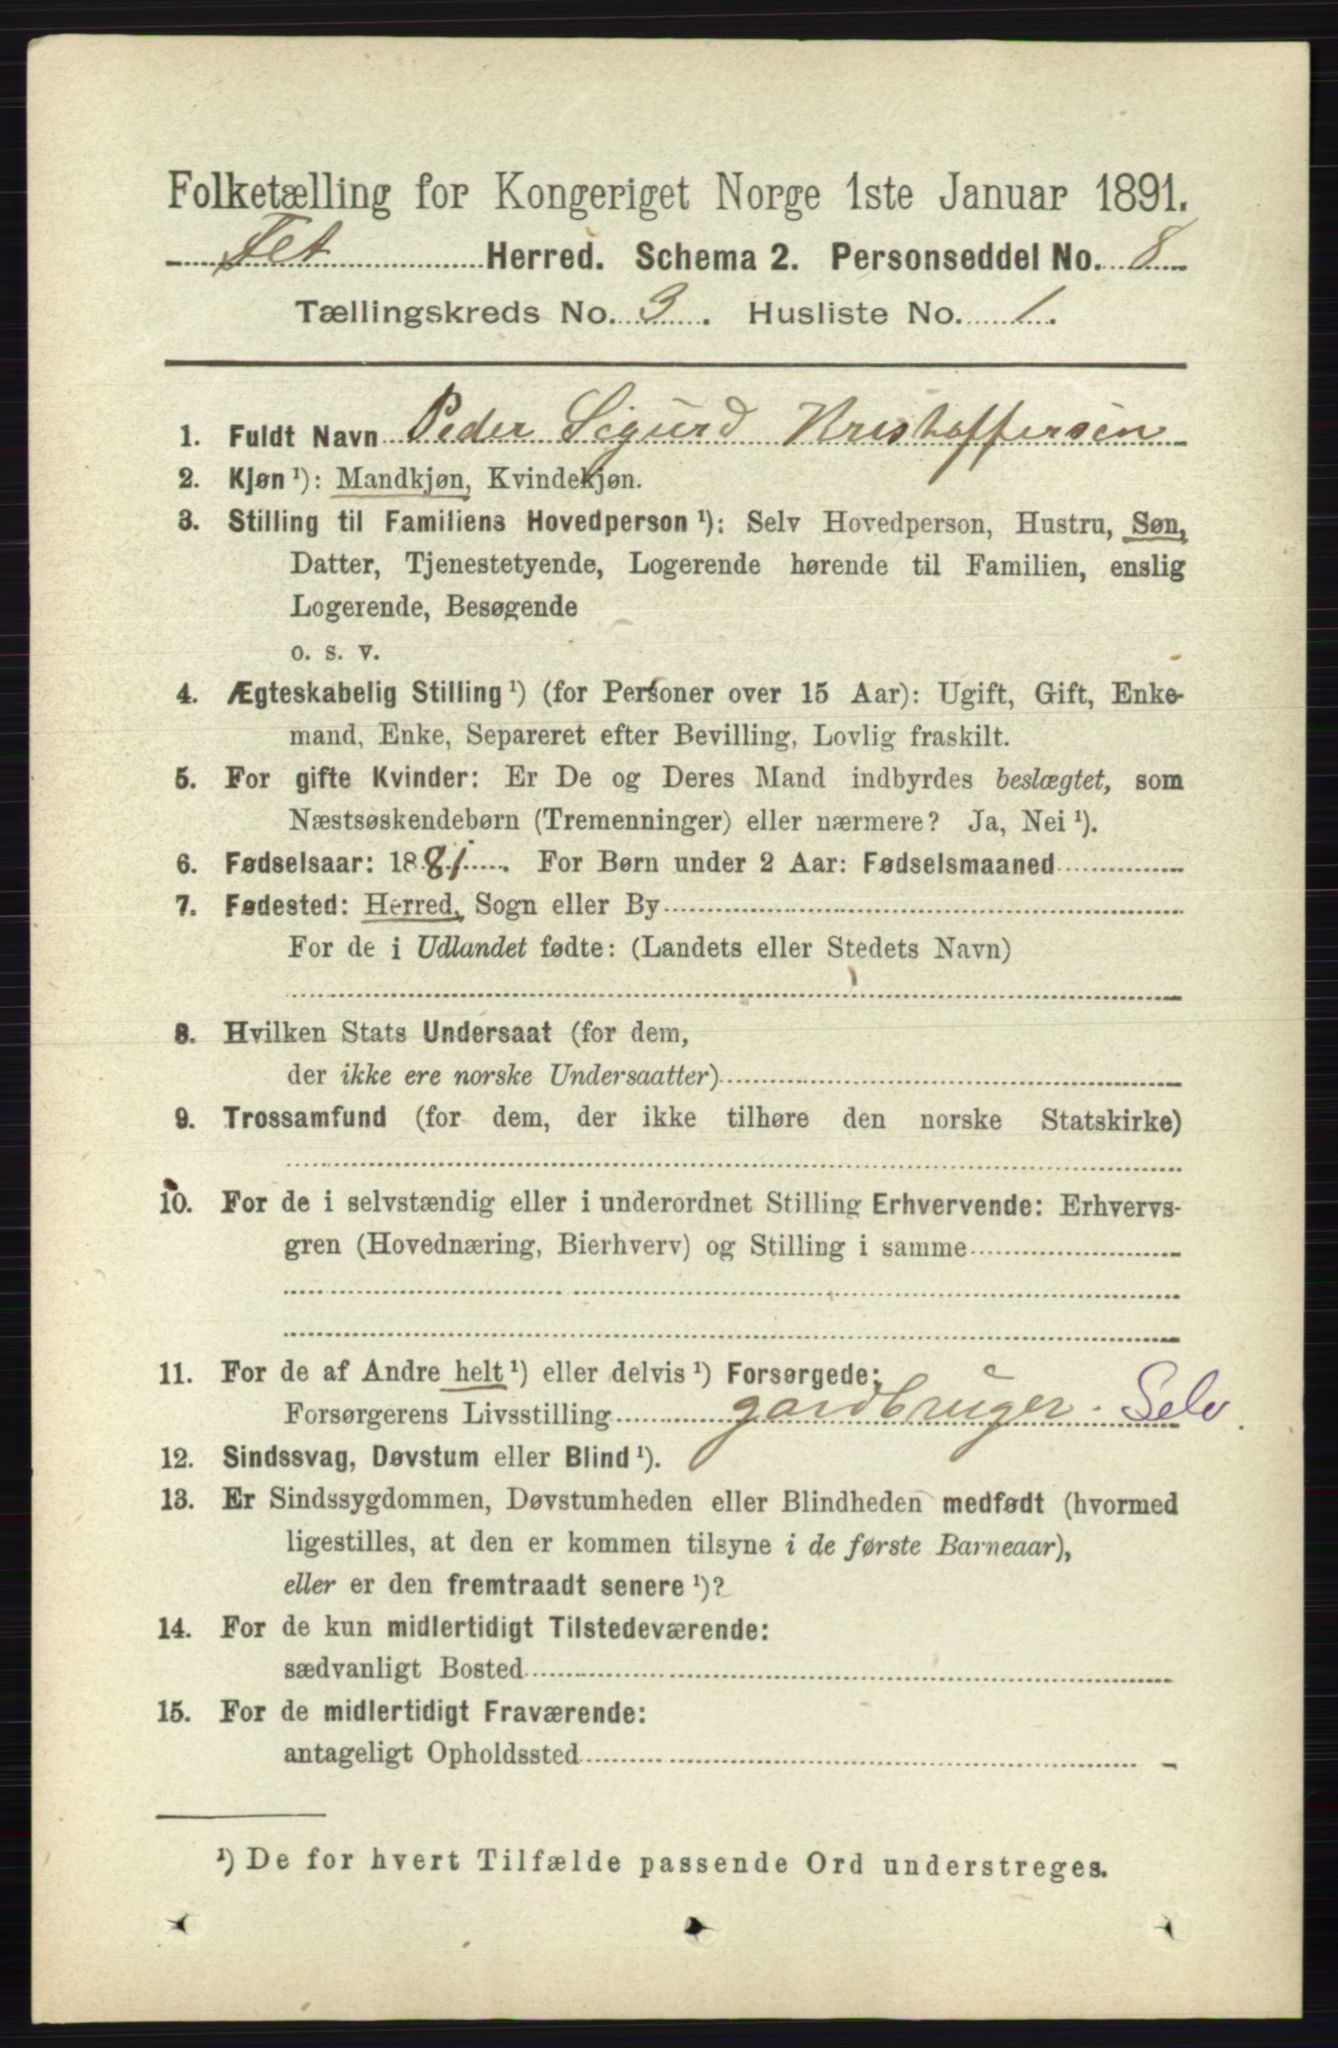 Folketælling for Kongeriget Norge 1ste Januar 1891.
Fet Herred. Schema 2. Personseddel No. 8
Tællingskreds No. 3. Husliste No. 1.
1. Fuldt Navn Peder Sigurd Kristoffersen
2. Kjøn ¹): Mandkjøn, Kvindekjøn.
3. Stilling til Familiens Hovedperson ¹): Selv Hovedperson, Hustru, Søn,
Datter, Tjenestetyende, Logerende hørende til Familien, enslig
Logerende, Besøgende
o. s. v.
4. Ægteskabelig Stilling ¹) (for Personer over 15 Aar): Ugift, Gift, Enke-
mand, Enke, Separeret efter Bevilling, Lovlig fraskilt.
5. For gifte Kvinder: Er De og Deres Mand indbyrdes beslægtet, som
Næstsøskendebørn (Tremenninger) eller nærmere? Ja, Nei ¹).
6. Fødselsaar: 1881. For Børn under 2 Aar: Fødselsmaaned
7. Fødested: Herred, Sogn eller By
For de i Udlandet fødte: (Landets eller Stedets Navn)
8. Hvilken Stats Undersaat (for dem,
der ikke ere norske Undersaatter)
9. Trossamfund (for dem, der ikke tilhøre den norske Statskirke)
10. For de i selvstændig eller i underordnet Stilling Erhvervende: Erhvervs-
gren (Hovednæring, Bierhverv) og Stilling i samme
11. For de af Andre helt ¹) eller delvis ¹) Forsørgede:
Forsørgerens Livsstilling gardbruger. Selv.
12. Sindssvag, Døvstum eller Blind ¹).
13. Er Sindssygdommen, Døvstumheden eller Blindheden medfødt (hvormed
ligestilles, at den er kommen tilsyne i de første Barneaar),
eller er den fremtraadt senere ¹)?
14. For de kun midlertidigt Tilstedeværende:
sædvanligt Bosted
15. For de midlertidigt Fraværende:
antageligt Opholdssted
¹) De for hvert Tilfælde passende Ord understreges.